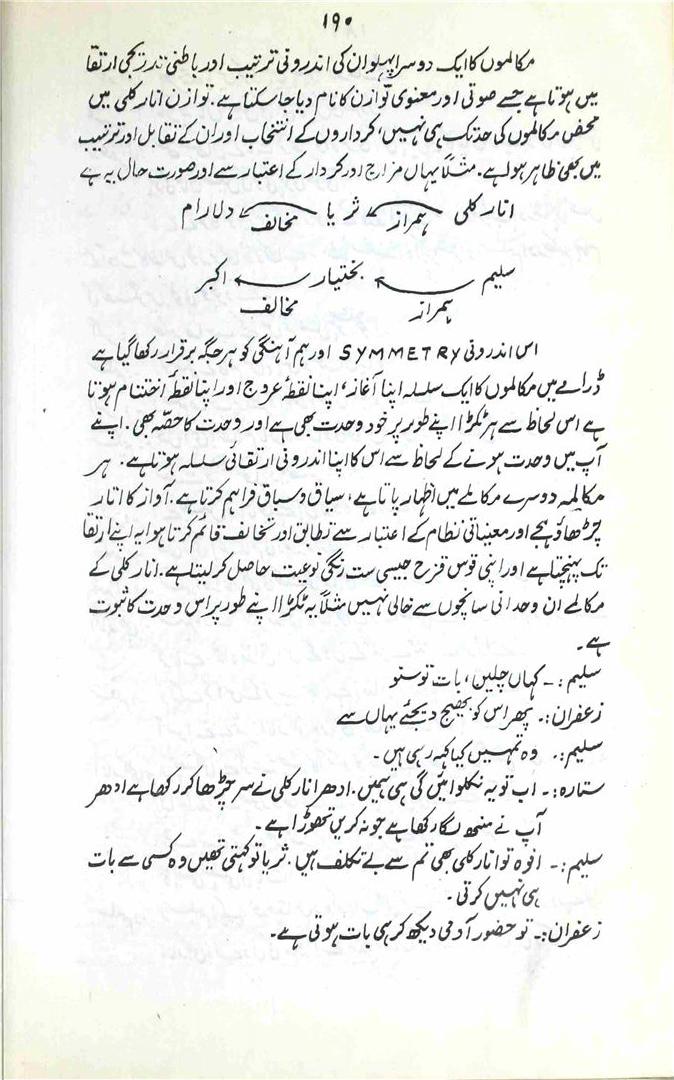 ۱۹۰
مکالموں کا ایک دوسرا پہلو ان کی اندرونی ترتیب اور باطنی تدریجی ارتقا
میں ہوتا ہے جسے صوتی اور معنوی توازن کا نام دیا جا سکتا ہے۔ توازن انار کلی میں
محض مکالموں کی حد تک ہی نہیں، کرداروں کے انتخاب اور ان کے تقابل اور ترتیب
میں بھی ظاہر ہوا ہے۔ مثلاً یہاں مزاج اور کردار کے اعتبار سے اور صورت حال یہ ہے
انار کلی ہمراز ثریا مخالف دلارام
سلیم بختیار اکبر
ہمراز مخالف
اس اندرونی SYMMETRY اور ہم آہنگی کو ہر جگہ برقرار رکھا گیا ہے
ڈرامے میں مکالموں کا ایک سلسلہ اپنا آغاز، اپنا نقطۂ عروج اور اپنا نقطۂ اختتام ہوتا
ہے اس لحاظ سے ہر ٹکڑا اپنے طور پر خود وحدت بھی ہے اور وحدت کا حصّہ بھی۔ اپنے
آپ میں وحدت ہونے کے لحاظ سے اس کا اپنا اندرونی ارتقائی سلسلہ ہوتا ہے۔ ہر
مکالمہ دوسرے مکالمے میں اظہار پاتا ہے، سیاق و سباق فراہم کرتا ہے۔ آواز کا اتار
چڑھاؤ لہجے اور معنیاتی نظام کے اعتبار سے تطابق اور تخالف قائم کرتا ہوا یہ اپنے ارتقا
تک پہنچتا ہے اور اپنی قوس قزح جیسی ست رنگی نوعیت حاصل کر لیتا ہے۔ انار کلی کے
مکالمے ان وحدانی سانچوں سے خالی نہیں مثلاً یہ ٹکڑا اپنے طور پر اس وحدت کا ثبوت
ہے۔
سلیم:۔ کہاں چلیں، بات تو سنو
زعفران:۔ پھر اس کو بھیج دیجئے یہاں سے
سلیم:۔ وہ تمہیں کیا کہہ رہی ہیں۔
ستارہ:۔ اب تو یہ نکلوائیں گی ہی ہمیں۔ ادھر انار کلی نے سر چڑھا کر رکھا ہے ادھر
آپ نے منھ لگا رکھا ہے جو نہ کریں تھوڑا ہے۔
سلیم:۔ افوہ تو انار کلی بھی تم سے بے تکلف ہیں۔ ثریا تو کہتی تھیں وہ کسی سے بات
ہی نہیں کرتی۔
زعفران:۔ تو حضور آدمی دیکھ کر ہی بات ہوتی ہے۔